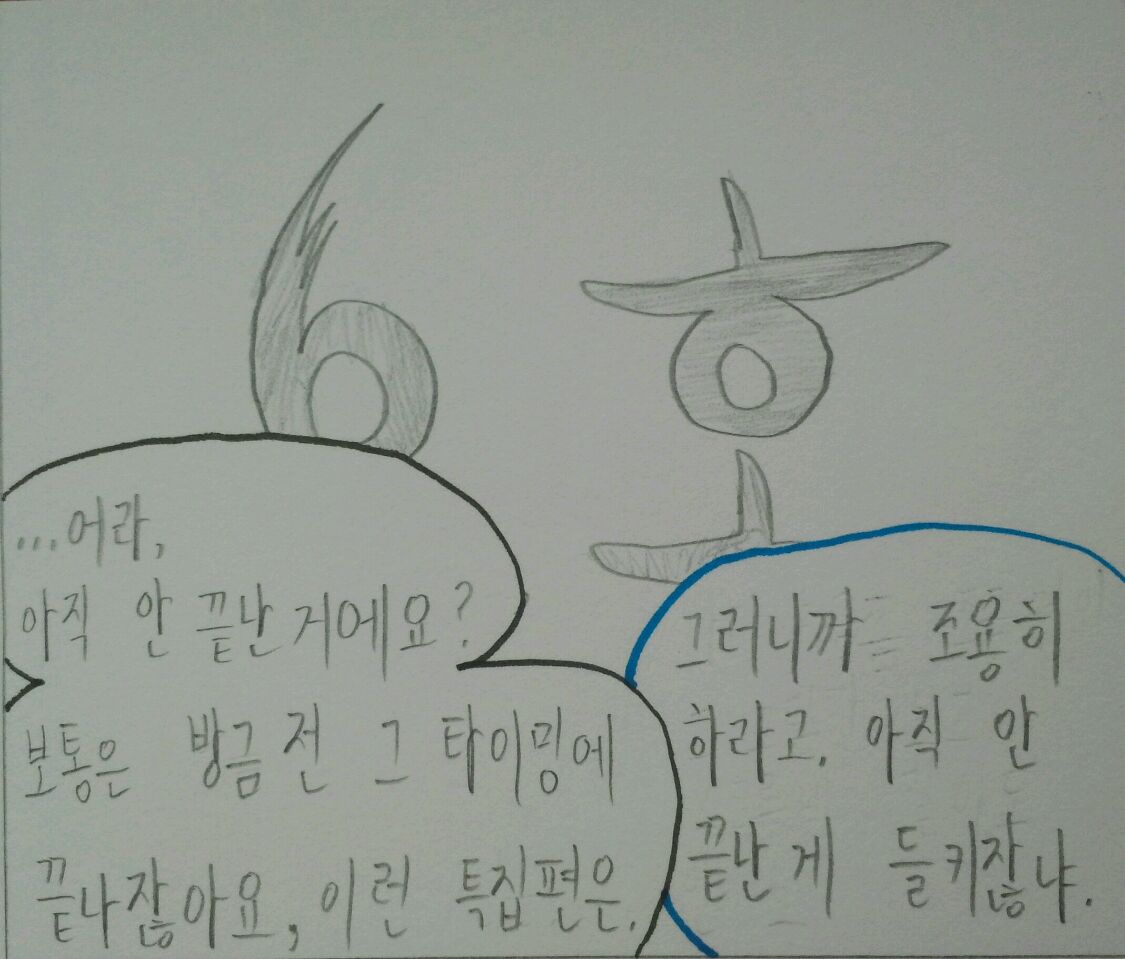 6 호
...어라,
아직 안 끝난 거에요?
보통은 방금 전 그 타이밍에
끝나잖아요, 이런 특집편은.
그러니까 조용히
하라고. 아직 안
끝난 게 들키잖냐.